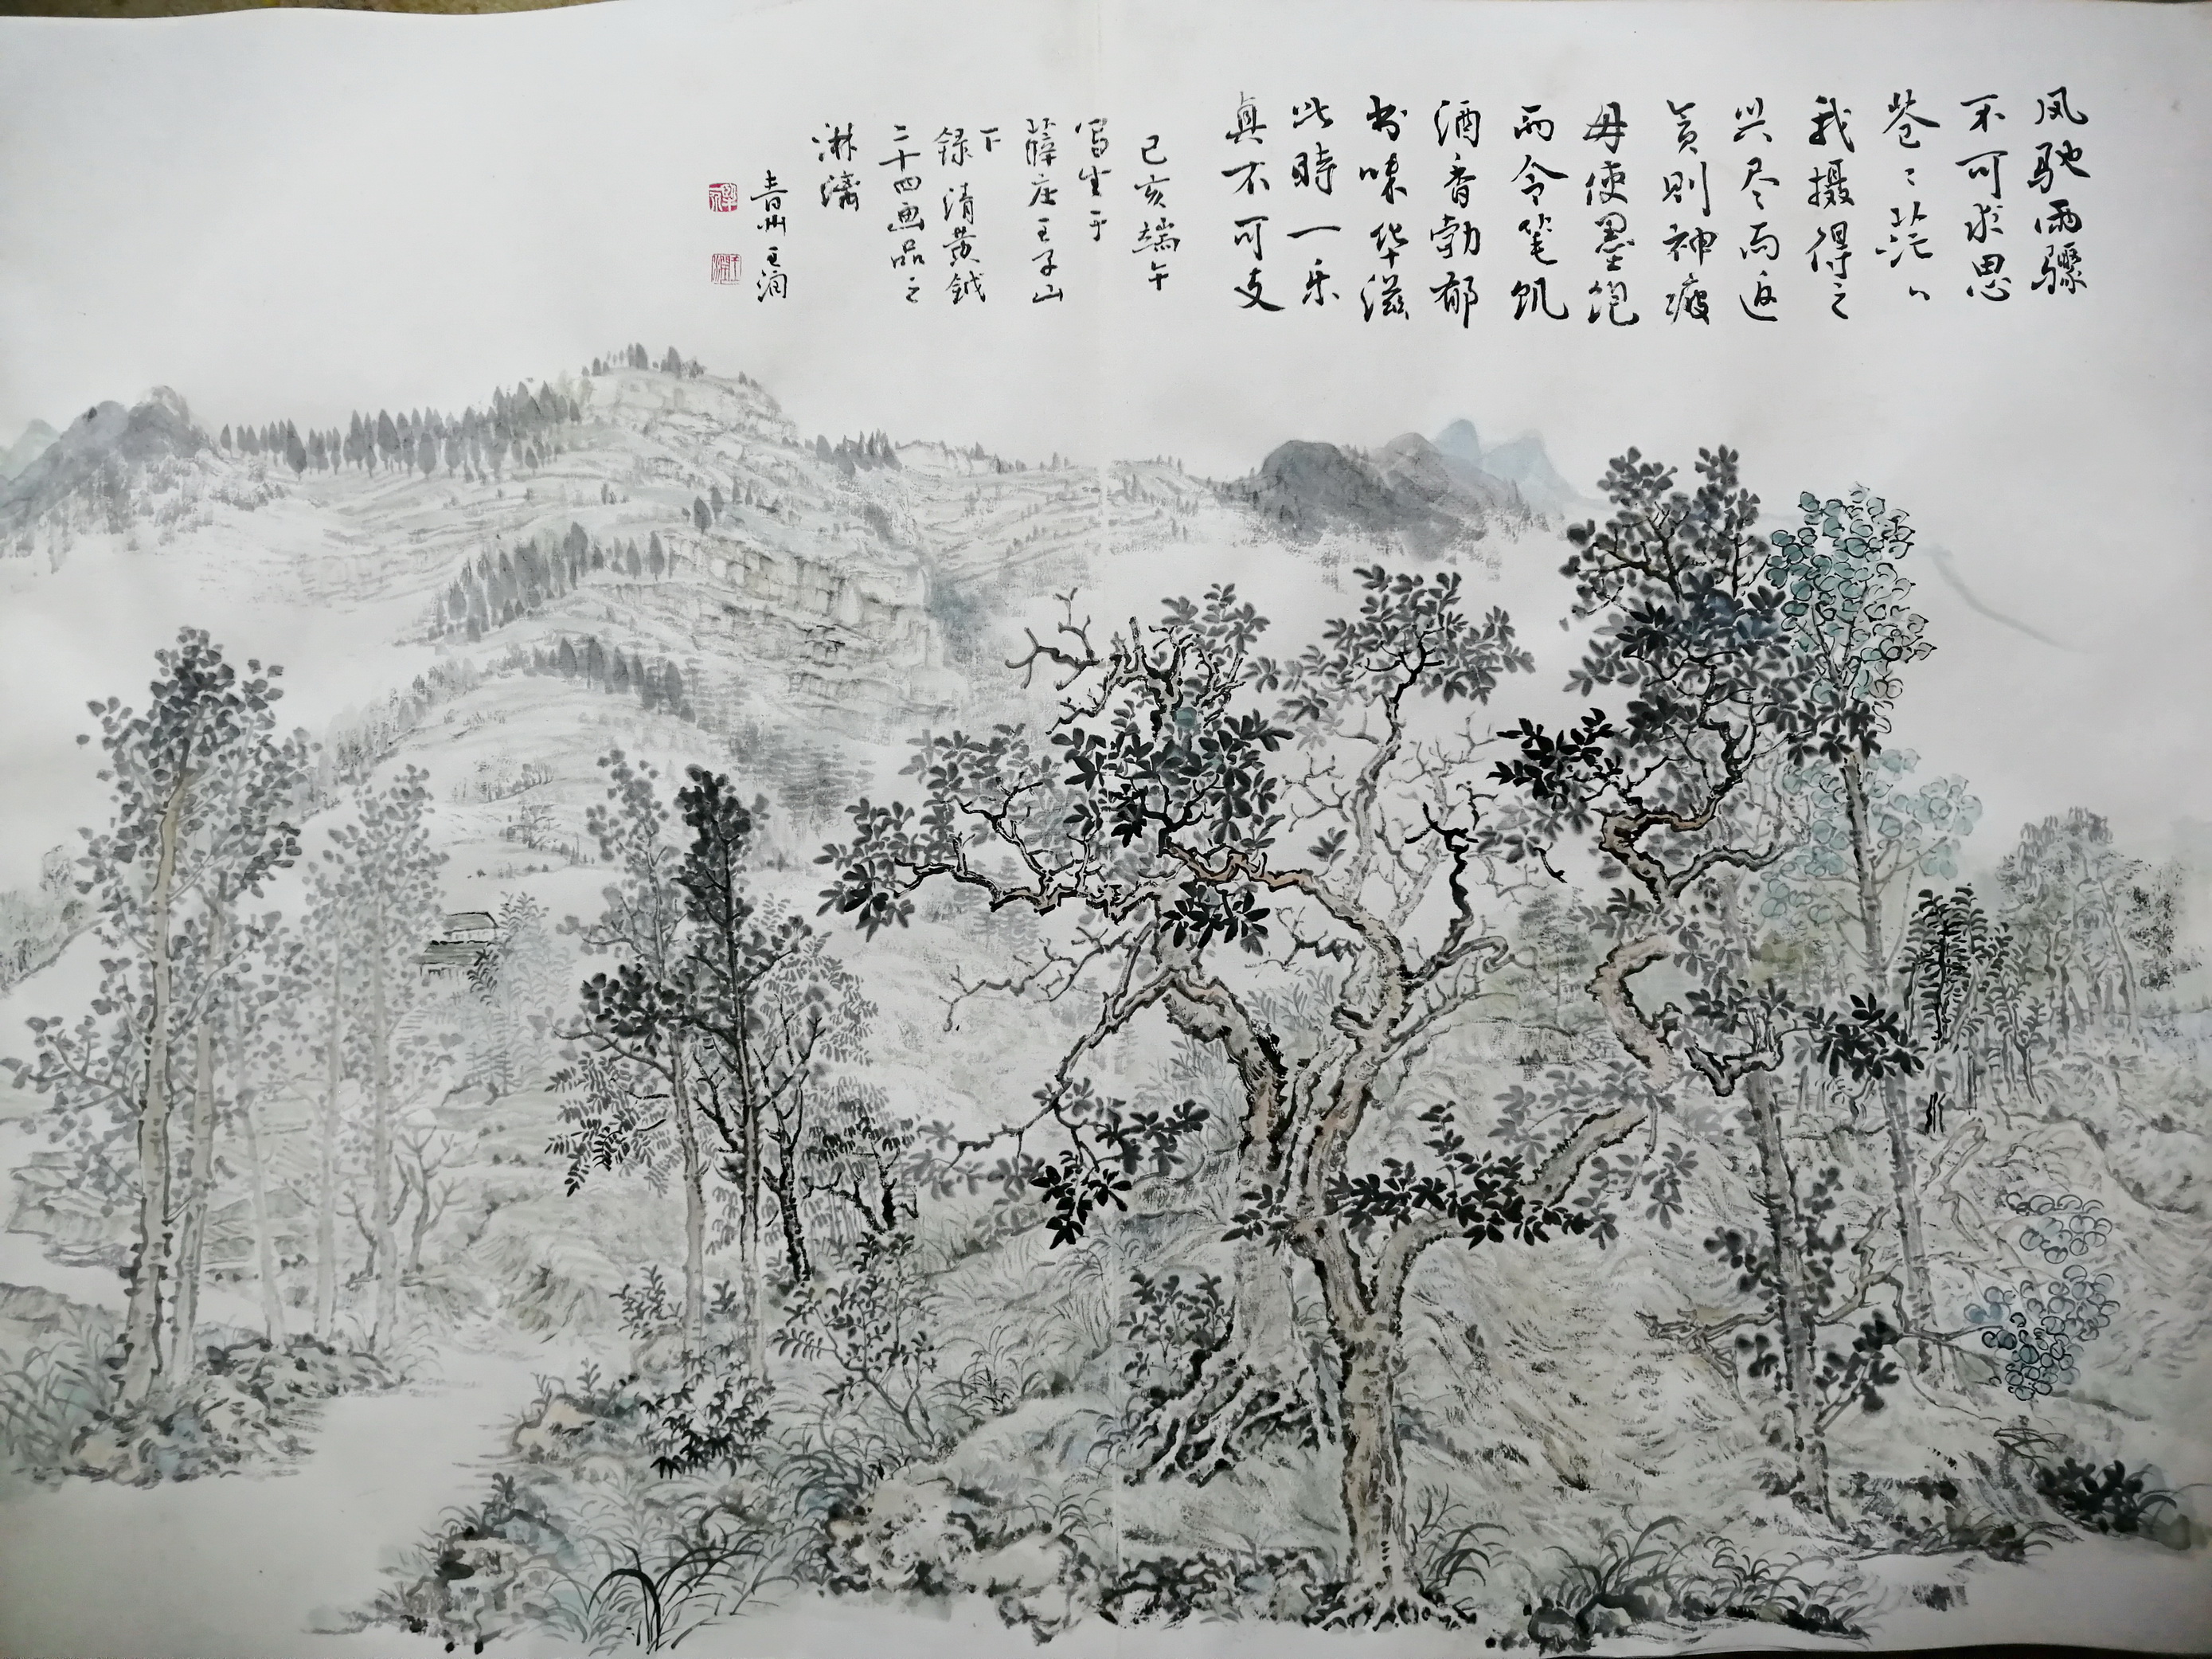 风驰雨骤
不可求思
苍〻茫〻
我摄得之
兴尽而返
贪则神疲
毋使墨饱
而令笔饥
酒香勃郁
书味华滋
此時一乐
真不可支
己亥端午
写生于
薛庄王子山
下
録清黄钺
二十四画品之
淋漓
青州王润